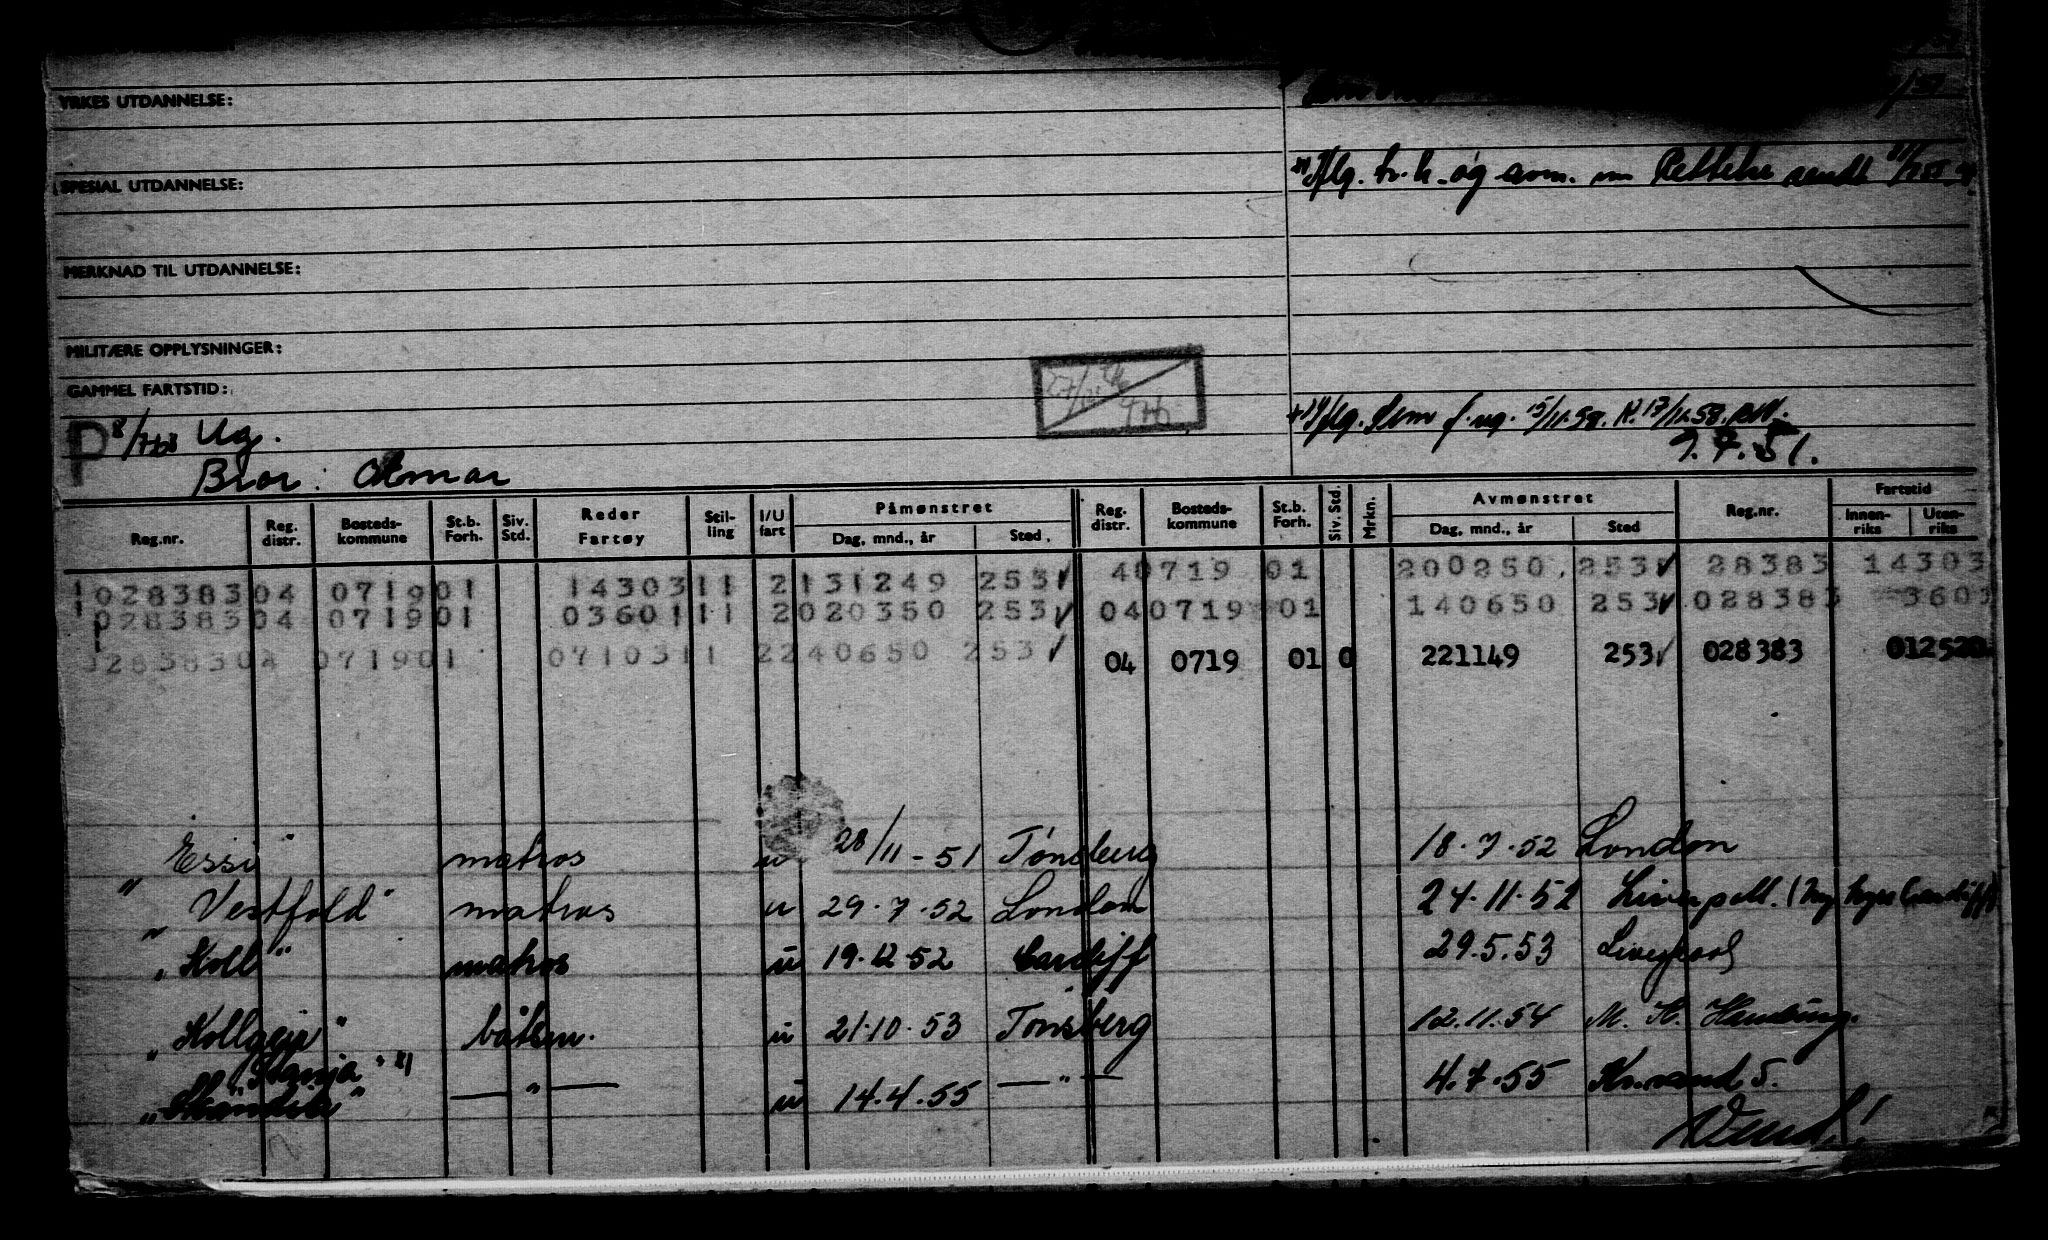 YRKES UTDANNELSE:
SPESIAL UTDANNELSE:
sendt
MERKNAD TIL UTDANNELSE:
MILITÆRE OPPLYSNINGER:
GAMMEL FARTSTID:
P 8/ Ug.
9.7.51.
Bror: Otmar
Reg.nr. Reg. distr. Bosteds-kommune St.b. Forh. Siv. Std. Reder Fartøy Stil-ling I/U fart Påmønstret Dag, mnd., år Sted. Reg. distr. Bosteds-kommune St.b. Forh. Siv. Std. Mrkn. Avmønstret Dag, mnd., år Sted Reg.nr. Fartstid Innen-riks Uten-riks
1 028383 04 0719 01 14303 11 2 131249 253 40719 01 200250. 253 28383 14303
028383 04 0719 01 03601 11 2 020350 253 04 0719 01 140650 253 028383 3601
028383 04 0719 01 07103 11 2 240650 253 04 0719 01 0 221149 253 028383 012520
"Essi" matros u 28/11-51 Tønsberg 18.7.52 London
"Vestfold" matros u 29.7.52 London 24.11.52 Liverpool.
"Koll" matros u 19.12.52 Cardiff 29.5.53 Liverpool
"Kollgeir" båtsm. u 21.10.53 Tønsberg 12.11.54 M. K. Hamburg.
u 14.4.55 — " — 4.7.55 Kr.sand S.
Vend!